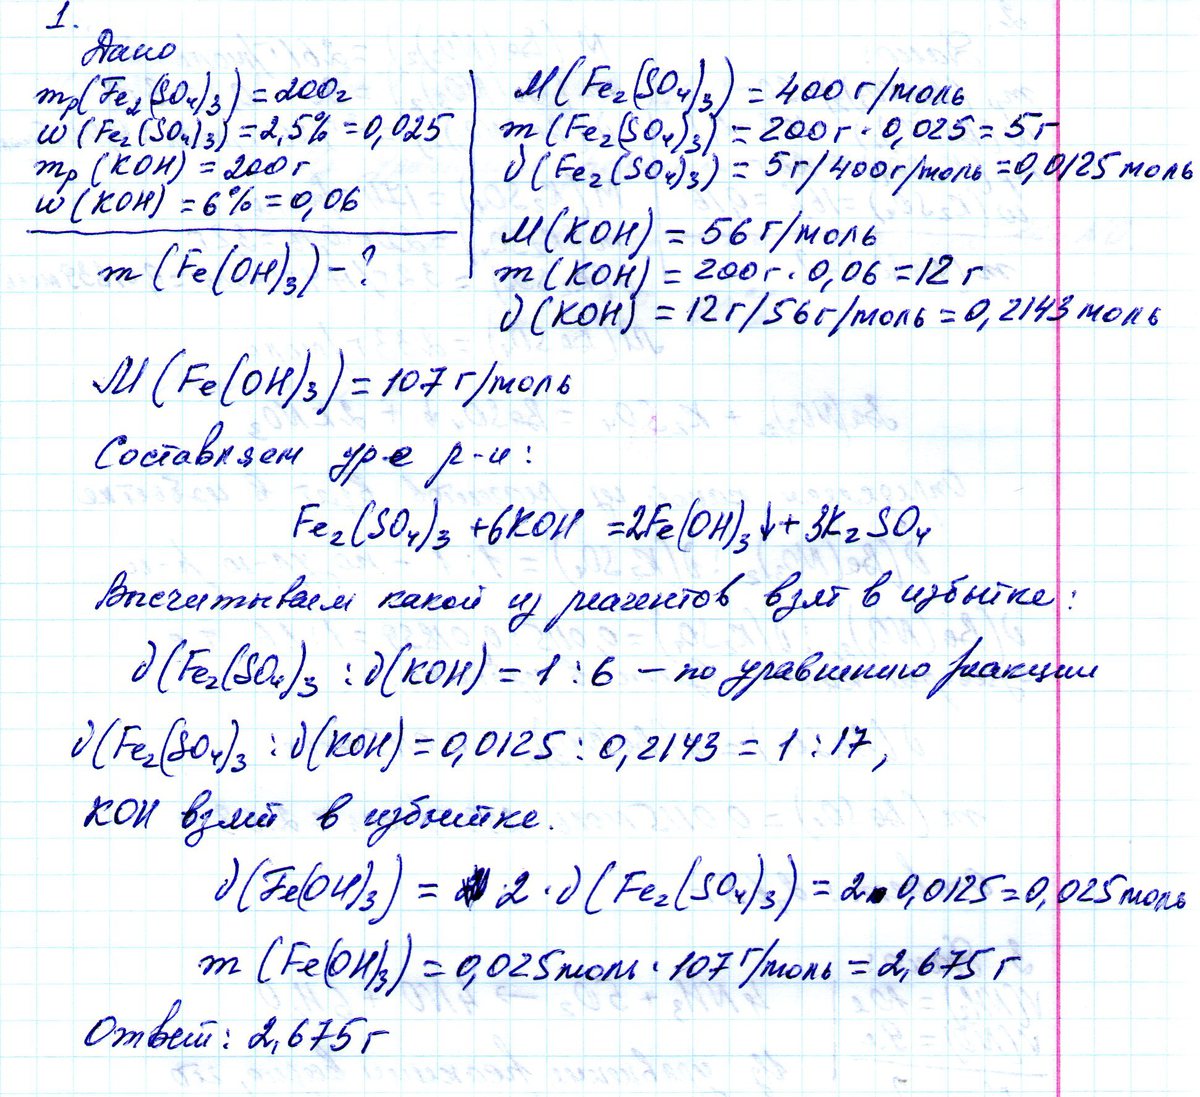 1.
Дано
mр(Fe₂(SO₄)₃) = 200г
w(Fe₂(SO₄)₃) = 2,5% = 0,025
mр(KOH) = 200г
w(KOH) = 6% = 0,06
m(Fe(OH)₃) - ?
M(Fe₂(SO₄)₃) = 400 г/моль
m(Fe₂(SO₄)₃) = 200г · 0,025 = 5г
ν(Fe₂(SO₄)₃) = 5г/400г/моль = 0,0125 моль
M(KOH) = 56 г/моль
m(KOH) = 200г · 0,06 = 12 г
ν(KOH) = 12г/56г/моль = 0,2143 моль
M(Fe(OH)₃) = 107 г/моль
Составляем ур-е р-и:
Fe₂(SO₄)₃ + 6KOH = 2Fe(OH)₃↓ + 3K₂SO₄
Высчитываем какой из реагентов взят в избытке:
ν(Fe₂(SO₄)₃ : ν(KOH) = 1 : 6 – по уравнению реакции
ν(Fe₂(SO₄)₃ : ν(KOH) = 0,0125 : 0,2143 = 1 : 17,
KOH взят в избытке.
ν(Fe(OH)₃) = 2 · ν(Fe₂(SO₄)₃) = 2 · 0,0125 = 0,025 моль
m(Fe(OH)₃) = 0,025 моль · 107 г/моль = 2,675 г
Ответ: 2,675 г